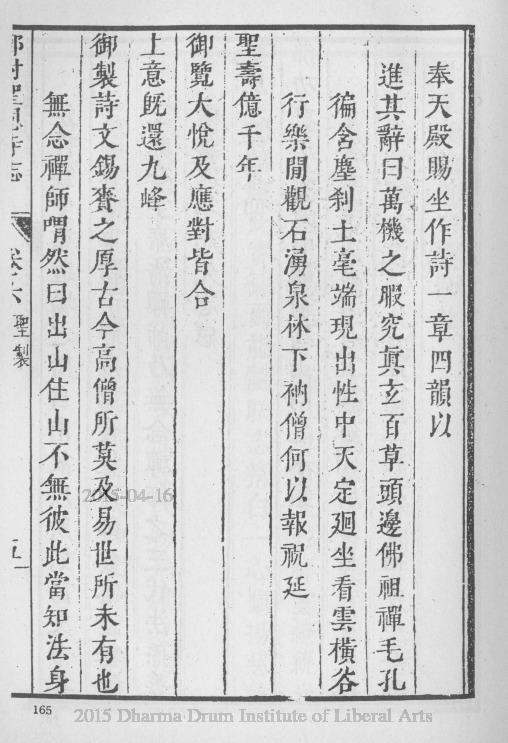 奉天殿賜坐作詩一章四韻以
進其辭曰萬機之暇究眞玄百草頭邊佛祖禪毛孔
徧含塵刹土毫端現出性中天定廻坐看雲橫谷
行樂閒觀石湧泉林下衲僧何以報祝延
聖壽億千年
御覽大悅及應對皆合
上意旣還九峰
御製詩文錫賚之厚古今高僧所莫及易世所未有也
無念禪師喟然曰出山住山不無彼此當知法身
聖恩寺志 卷六 聖製 五
2015-04-16
165
2015 Dharma Drum Institute of Liberal Arts